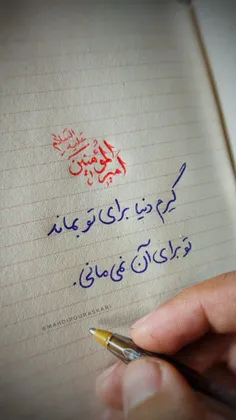 امیرالمؤمنین علیه السلام
گیرم دنیا برای تو بماند
تو برای آن نمی مانی.
@MAHDIPOURASKARI